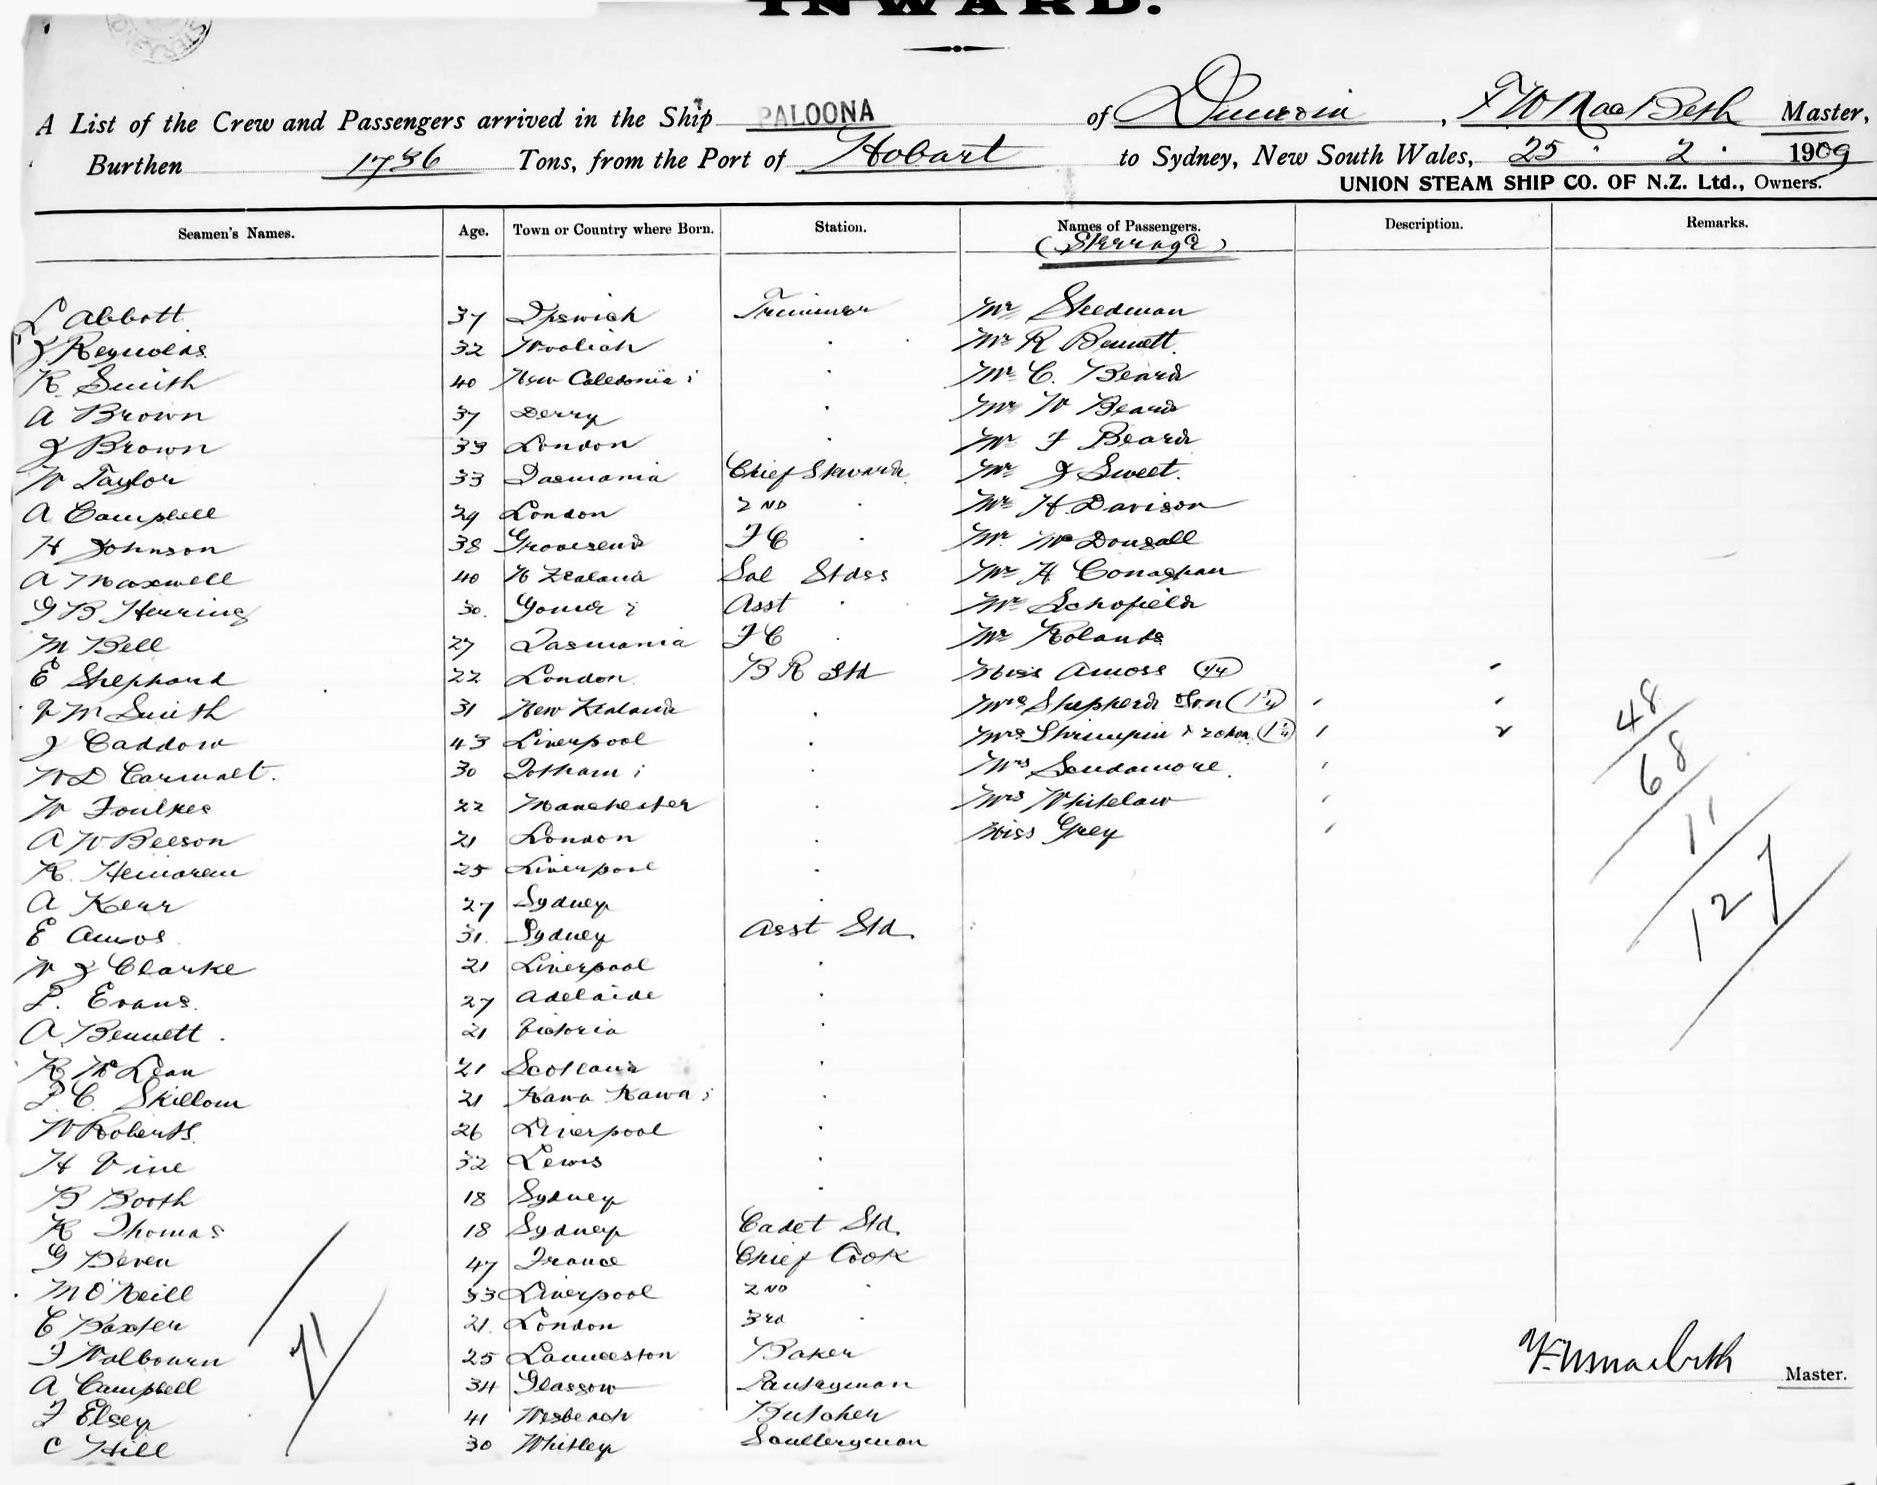 INWARD.
A List of the Crew and Passengers arrived in the Ship PALOONA of Dunedin, F W MacBeth Master,
Burthen 1736 Tons, from the Port of Hobart to Sydney, New South Wales, 25 . 2 . 1909
UNION STEAM SHIP CO. OF N.Z. Ltd., Owners.
Seamen's Names. Age. Town or Country where Born. Station. Names of Passengers. Description. Remarks.
(Steerage)
L Abbott 37 Ipswich Trimmer Mr Steedman
J Reynolds 32 Woolich " Mr R Bennett
R Smith 40 New Caledonia ; " Mr C. Beard
A Brown 37 Derry " Mr W Beard
J Brown 33 London " Mr F Beard
W Taylor 33 Tasmania Chief Steward Mr J Sweet.
A Campbell 29 London 2ND " Mr H Davison
H Johnson 38 Gravesend F C " Mr McDougall
A Maxwell 40 N Zealand Sal Stdss Mr H Conaghan
G B Herring 30. Asst " Mr Schofield
M Bell 27 Tasmania F C " Mr Rolands
E Shephard 22 London B R Std Miss Amoss (1/4)
J M Smith 31 New Zealand " Mrs Shepherd & Son (1 1/4)
J Caddow 43 Liverpool " Mrs Shrimpin & 2 chn (1 1/4) 2
W D Carmalt. 30 Totham ; " Mrs Scudamore.
W Foulkes 22 Manchester " Mrs Whitelaw
A W Beeson 21 London " Miss Grey
R. 25 Liverpool "
A Kerr 27 Sydney "
E Amos 31. Sydney Asst Std.
W J Clarke 21 Liverpool "
P. Evans. 27 Adelaide "
A Bennett. 21 Victoria "
R McLean 21 Scotland "
P. C. Skillom 21 Kawa Kawa ; "
W Roberts. 26 Liverpool "
H Vine 32 Lewis "
B Booth 18 Sydney "
R Thomas 18 Sydney Cadet Std.
G Deven 47 France Chief Cook
M O'Neill 33 Liverpool 2ND "
C Baxter 21. London 3rd "
F Walbourn 25 Launceston Baker
A Campbell 34 Glasgow Pantryman
F Elsey 41 Wesbeach Butcher
C Hill 30 Whitley Sculleryman
71
48
68
11
127
F. W. MacBeth Master.